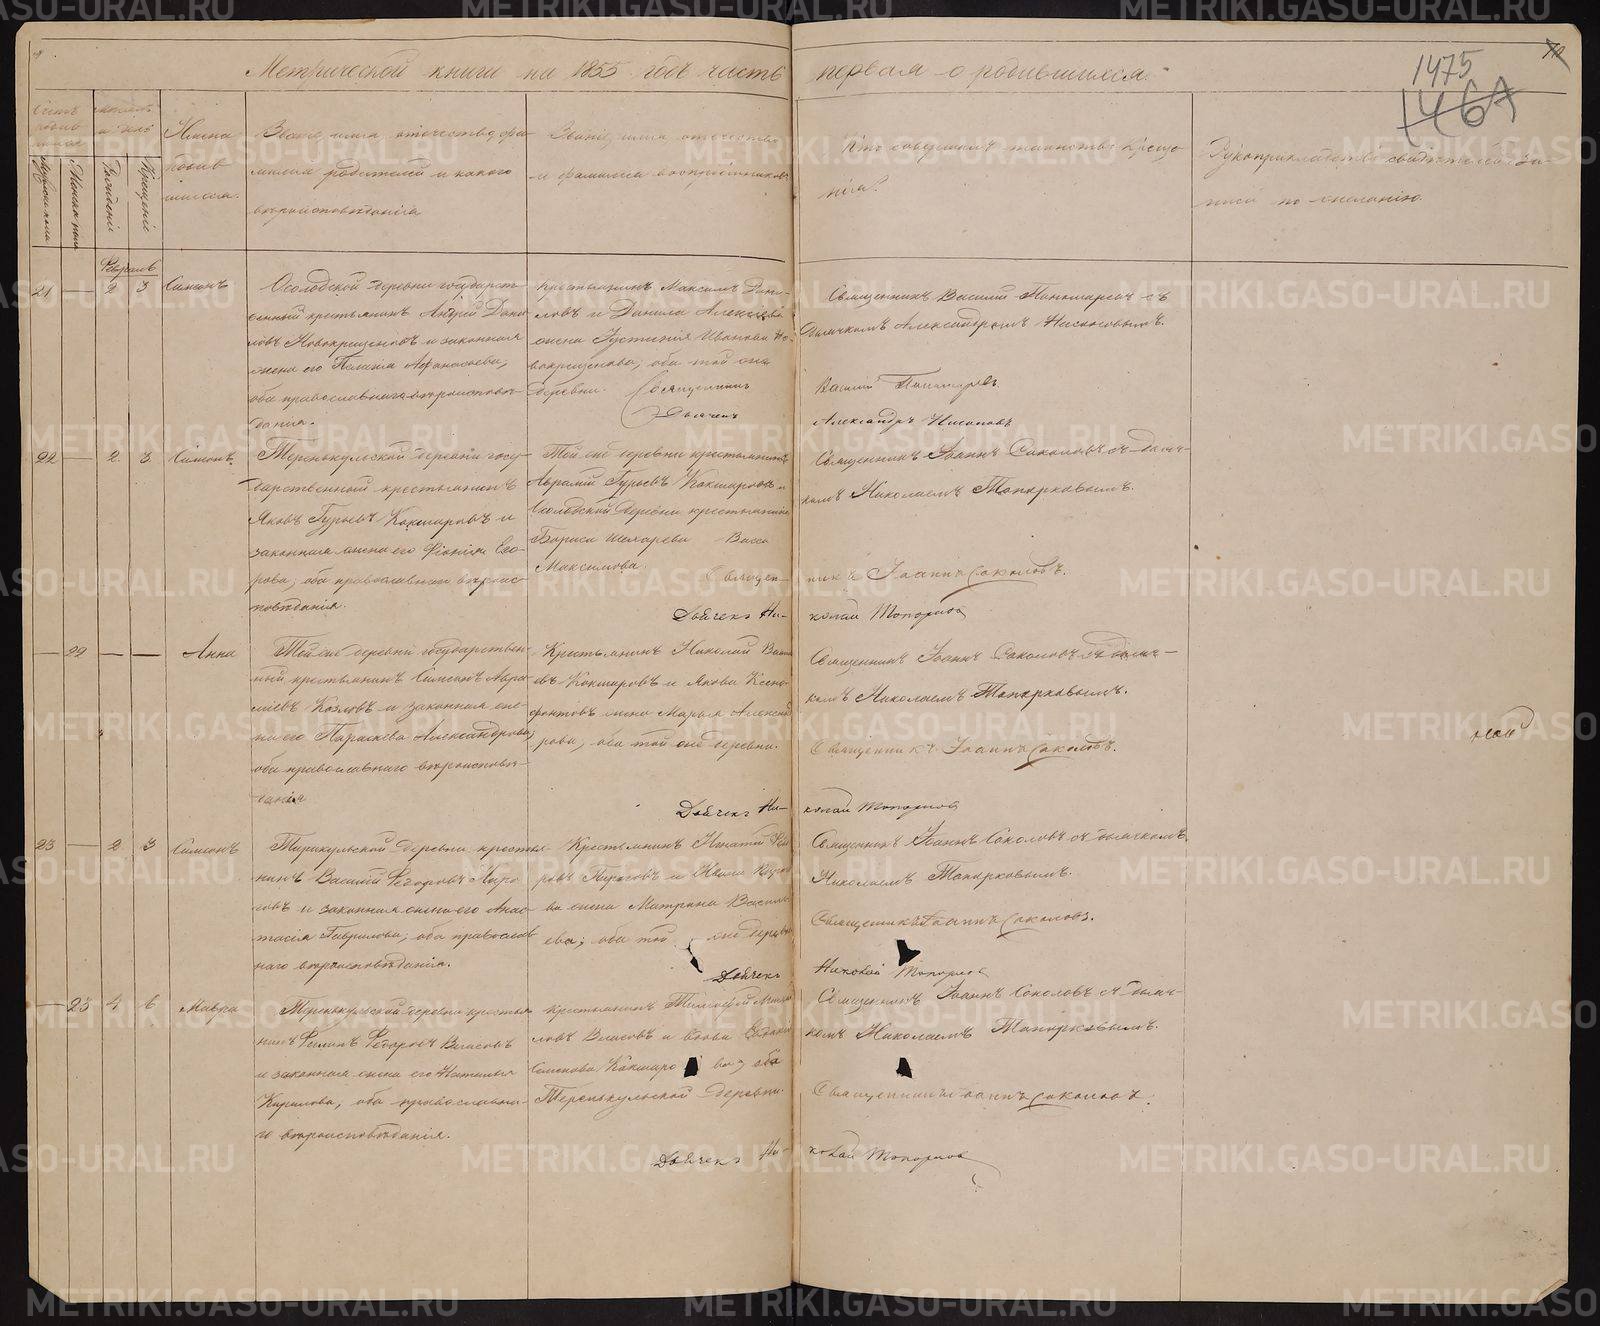 Метрической книги на 1855 годъ часть первая о родившихся.
1475
1467
Счетъ родившихся
Мужеска пола
Женска пола
Рожденія
Крещенія
Имена родившихся.
Званіе, имя, отечество, фамилія родителей и какого вѣроисповѣданія
Званіе, имя, отечество и фамилія воспріемниковъ
Кто совершалъ таинство крещенія?
Рукоприкладство свидѣтелей записи по желанію.
Февраль
21 — 2 3 Симеонъ
Осолодской деревни государст-
венный крестьянинъ Андрей Дани-
ловъ Новокрещеновъ и законная
жена его Пелагія Афанасьева,
оба православнаго вѣроисповѣ-
данія.
крестьянинъ Максимъ Дани-
ловъ и Данила Алексѣева
жена Устинія Иванова Но-
вокрещенова, оба той же
деревни. Священникъ
Дьячекъ
Священникъ Василій Пономаревъ съ
дьячкомъ Александромъ Насоновымъ.
Василій Пономаревъ
Александръ Насоновъ
22 — 2 3 Симеонъ
Теренькульской деревни госу-
дарственной крестьянинъ
Яковъ Гурьевъ Кокшаровъ и
законная жена его Фіонія Его-
рова, оба православнаго вѣроис-
повѣданія.
Той же деревни крестьянинъ
Аврамій Гурьевъ Кокшаровъ и
Осолодской деревни крестьянина
Бориса Шемарева Васса
Максимова.
Священникъ Іоаннъ Соколовъ съ дьяч-
комъ Николаемъ Топорковымъ.
Священникъ Іоаннъ Соколовъ.
Дьячекъ Николай Топорковъ
— 22 — — Анна
Той же деревни государствен-
ный крестьянинъ Симеонъ Авра-
міевъ Козловъ и законная же-
на его Параскева Александрова,
оба православнаго вѣроисповѣ-
данія
Крестьянинъ Николай Васи-
евъ Кокшаровъ и Якова Ксено-
фонтовъ жена Марья Александ
рова, оба той же деревни.
Священникъ Іоаннъ Соколовъ съ дьяч-
комъ Николаемъ Топорковымъ.
Священникъ Іоаннъ Соколовъ.
Дьячекъ Николай Топорковъ
23 — 2 3 Симеонъ
Теренкульской деревни крестья-
нинъ Василій Ѳедоровъ
и законная жена его Анас-
тасія Гаврилова, оба православ
наго вѣроисповѣданія.
Крестьянинъ Игнатій
жена Матрона Василь
ева; оба той же деревни
Священникъ Іоаннъ Соколовъ съ дьячкомъ
Николаемъ Топорковымъ.
Священникъ Іоаннъ Соколовъ.
Дьячекъ Николай Топорковъ
— 23 4 6 Мавра
Теренькульской деревни крестья
нинъ Филипъ Ѳедоровъ Власовъ
и законная жена его Наталья
Кирилова, оба православна-
го вѣроисповѣданія.
крестьянинъ Тимофей
ловъ Власовъ и вдова
Семенова Кокшарова, оба
Теренькульской деревни.
Священникъ Іоаннъ Соколовъ съ дьяч-
комъ Николаемъ Топорковымъ.
Священникъ Іоаннъ Соколовъ.
Дьячекъ Николай Топорковъ
METRIKI.GASO-URAL.RU